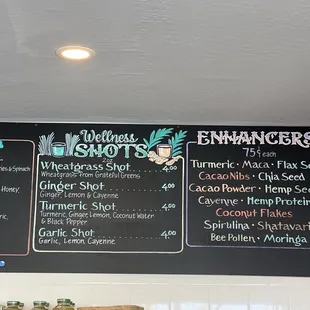 & Spinach
Honey
Wellness
SHOTS
2oz
Wheatgrass Shot 4.00
Wheatgrass from Grateful Greens
Ginger Shot 4.00
Ginger, Lemon & Cayenne
Turmeric Shot 4.00
Turmeric, Ginger Lemon, Coconut Water
& Black Pepper
Garlic Shot 4.00
Garlic, Lemon, Cayenne
ENHANCERS
75¢ each
Turmeric · Maca · Flax Se
Cacao Nibs · Chia Seed
Cacao Powder · Hemp Seed
Cayenne · Hemp Protein
Coconut Flakes
Spirulina · Shatavari
Bee Pollen · Moringa